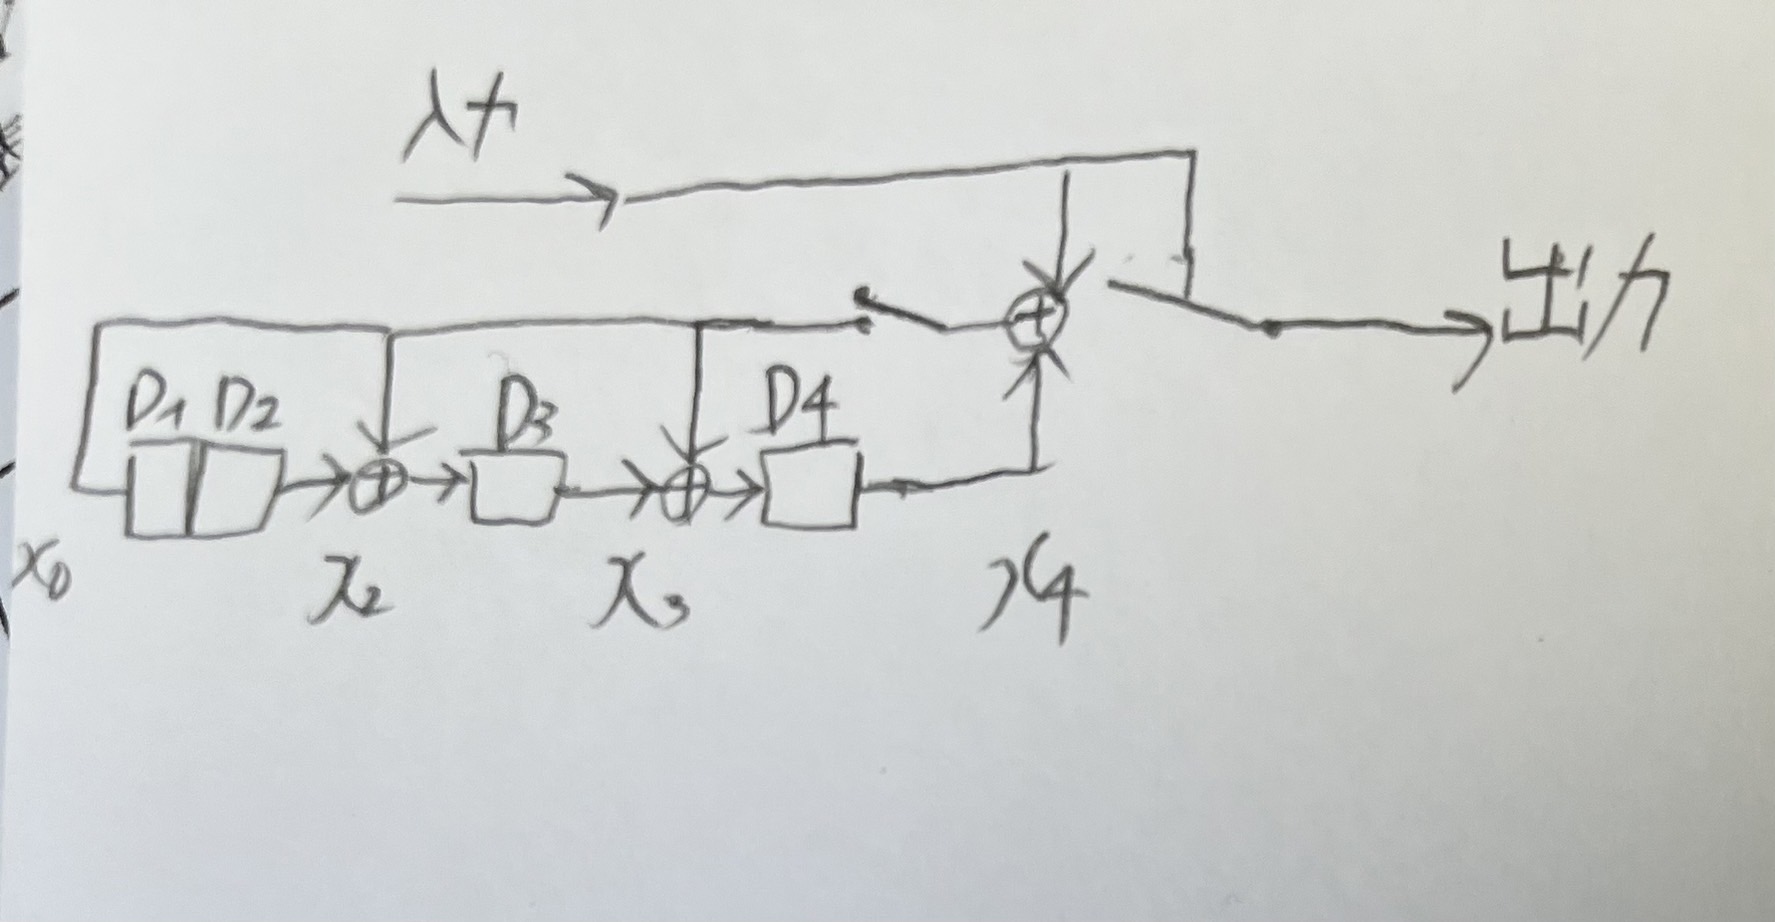 入力
出力
D1 D2 D3 D4
x0 x2 x3 x4